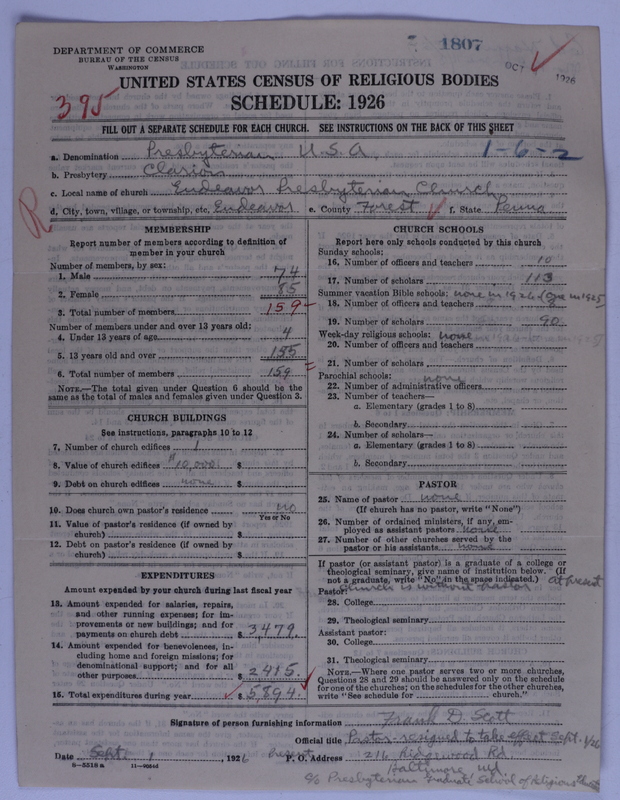 DEPARTMENT OF COMMERCE
BUREAU OF THE CENSUS
WASHINGTON
1807
OCT 1926
UNITED STATES CENSUS OF RELIGIOUS BODIES
395
SCHEDULE: 1926
FILL OUT A SEPARATE SCHEDULE FOR EACH CHURCH. SEE INSTRUCTIONS ON THE BACK OF THIS SHEET
a. Denomination Presbyterian U.S.A. 1-6-2
b. Presbytery Clarion
c. Local name of church Endeavor Presbyterian Church
d. City, town, village, or township, etc. Endeavor e. County Forest f. State Penna
R
MEMBERSHIP
Report number of members according to definition of member in your church
Number of members, by sex:
1. Male 74
2. Female 85
3. Total number of members 159
Number of members under and over 13 years old:
4. Under 13 years of age 4
5. 13 years old and over 155
6. Total number of members 159
NOTE.—The total given under Question 6 should be the same as the total of males and females given under Question 3.
CHURCH BUILDINGS
See instructions, paragraphs 10 to 12
7. Number of church edifices 1
8. Value of church edifices $10,000 $
9. Debt on church edifices none $
10. Does church own pastor's residence no
Yes or No
11. Value of pastor's residence (if owned by church) $
12. Debt on pastor's residence (if owned by church) $
EXPENDITURES
Amount expended by your church during last fiscal year
13. Amount expended for salaries, repairs, and other running expenses; for improvements or new buildings; and for payments on church debt $ 3479.
14. Amount expended for benevolences, including home and foreign missions; for denominational support; and for all other purposes $ 2415.
15. Total expenditures during year $ 5894.
CHURCH SCHOOLS
Report here only schools conducted by this church
Sunday schools:
16. Number of officers and teachers 10
17. Number of scholars 113
Summer vacation Bible schools: none in 1926 (one in 1925)
18. Number of officers and teachers
19. Number of scholars 90
Week-day religious schools: none
20. Number of officers and teachers
21. Number of scholars
Parochial schools: none
22. Number of administrative officers
23. Number of teachers—
a. Elementary (grades 1 to 8)
b. Secondary
24. Number of scholars—
a. Elementary (grades 1 to 8)
b. Secondary
PASTOR
25. Name of pastor none
(If church has no pastor, write "None")
26. Number of ordained ministers, if any, employed as assistant pastors none
27. Number of other churches served by the pastor or his assistants none
If pastor (or assistant pastor) is a graduate of a college or theological seminary, give name of institution below. (If not a graduate, write "No" in the space indicated.) At present
Pastor: Church is without pastor
28. College
29. Theological seminary
Assistant pastor:
30. College
31. Theological seminary
NOTE.—Where one pastor serves two or more churches, Questions 28 and 29 should be answered only on the schedule for one of the churches; on the schedules for the other churches, write "See schedule for church."
Signature of person furnishing information Frank D. Scott
Official title Pastor resigned to take effect Sept. 1/26
Date Sept. 1, 1926 Present P. O. Address 216 Ridgewood Rd.
8-5518 a
Baltimore Md.
c/o Presbyterian Graduate School of Religious